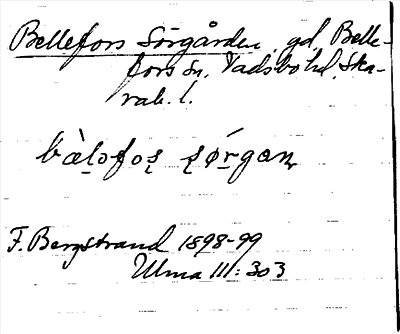 Bellefors Sörgården, gd, Belle-
fors sn, Vadsbo hd, Ska-
rab. l.
bæ̀ḷofoṣ ṣørgan
F. Bergstrand 1898-99
Ulma III: 303